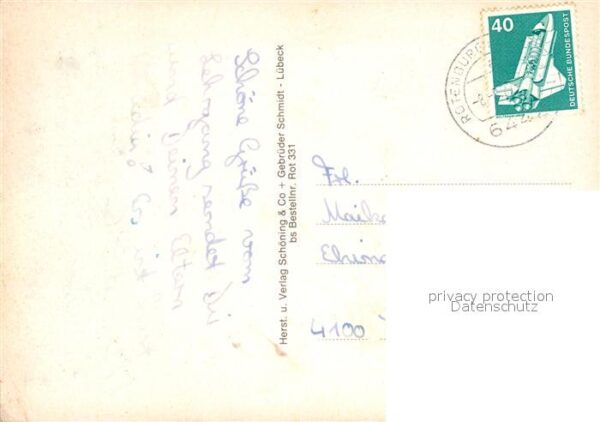 Schöne Grüße vom
Lehrgang sendet Dir
und Deinen Eltern
Es ist
Herst. u. Verlag Schöning & Co + Gebrüder Schmidt - Lübeck
bs Bestellnr. Rot 331
40
DEUTSCHE BUNDESPOST
ROTENBURG
644
Frl.
Maike
4100
privacy protection
Datenschutz